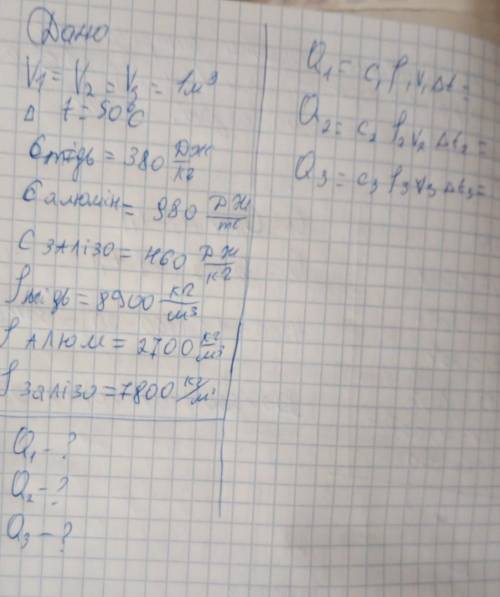 Дано
V₁ = V₂ = V₃ = 1м³
Δ t = 50°C
C мідь = 380 Дж/кг
C алюмін = 980 Дж/
C залізо = 460 Дж/кг
ρ мідь = 8900 кг/м³
ρ алюм = 2700 кг/м³
ρ залізо = 7800 кг/м³
Q₁ - ?
Q₂ - ?
Q₃ - ?
Q₁ = C₁ρ₁V₁Δt =
Q₂ = C₂ρ₂V₂Δt₂ =
Q₃ = C₃ρ₃V₃Δt₃ =